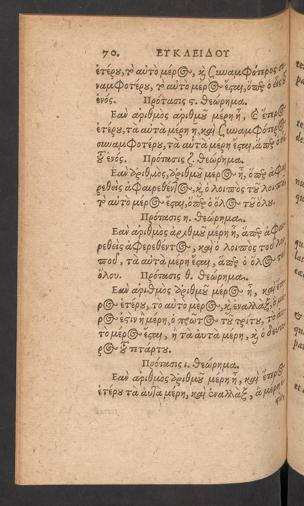 70. ΕΥΚΛΕΙΔΟΥ
ἑτέρου, τὸ αὐτὸ μέρος, καὶ συναμφότερος
ναμφοτέρου, τὸ αὐτὸ μέρος ἔσται, ὅπερ ὁ εἷς τοῦ
ἑνός. Πρότασις ς. θεώρημα.
Ἐὰν ἀριθμὸς ἀριθμοῦ μέρη ᾖ, καὶ ἕτερος
ἑτέρου, τὰ αὐτὰ μέρη ᾖ, καὶ συναμφότερος
συναμφοτέρου, τὰ αὐτὰ μέρη ἔσται, ἅπερ ὁ
τοῦ ἑνός. Πρότασις ζ. θεώρημα.
Ἐὰν ἀριθμὸς, ἀριθμοῦ μέρος ᾖ, ὅπερ
ρεθεὶς ἀφαιρεθέντος, καὶ ὁ λοιπὸς τοῦ λοιποῦ
τὸ αὐτὸ μέρος ἔσται, ὅπερ ὁ ὅλος τοῦ ὅλου.
Πρότασις η. θεώρημα.
Ἐὰν ἀριθμὸς ἀριθμοῦ μέρη ᾖ, ἅπερ
ρεθεὶς ἀφαιρεθέντος, καὶ ὁ λοιπὸς τοῦ λοι-
ποῦ, τὰ αὐτὰ μέρη ἔσται, ἅπερ ὁ ὅλος τοῦ
ὅλου. Πρότασις θ. θεώρημα.
Ἐὰν ἀριθμὸς ἀριθμοῦ μέρος ᾖ, καὶ
ρος ἑτέρου, τὸ αὐτὸ μέρος, καὶ ἐναλλὰξ, ὃ
ρος ἐστὶν ἢ μέρη, ὁ πρῶτος τοῦ τρίτου, τὸ
τὸ μέρος ἔσται, ἢ τὰ αὐτὰ μέρη, καὶ ὁ δεύτε
ρος τοῦ τετάρτου.
Πρότασις ι. θεώρημα.
Ἐὰν ἀριθμὸς ἀριθμοῦ μέρη ᾖ, καὶ ἕτερος
ἑτέρου τὰ αὐτὰ μέρη, καὶ ἐναλλὰξ, ἃ μέρη